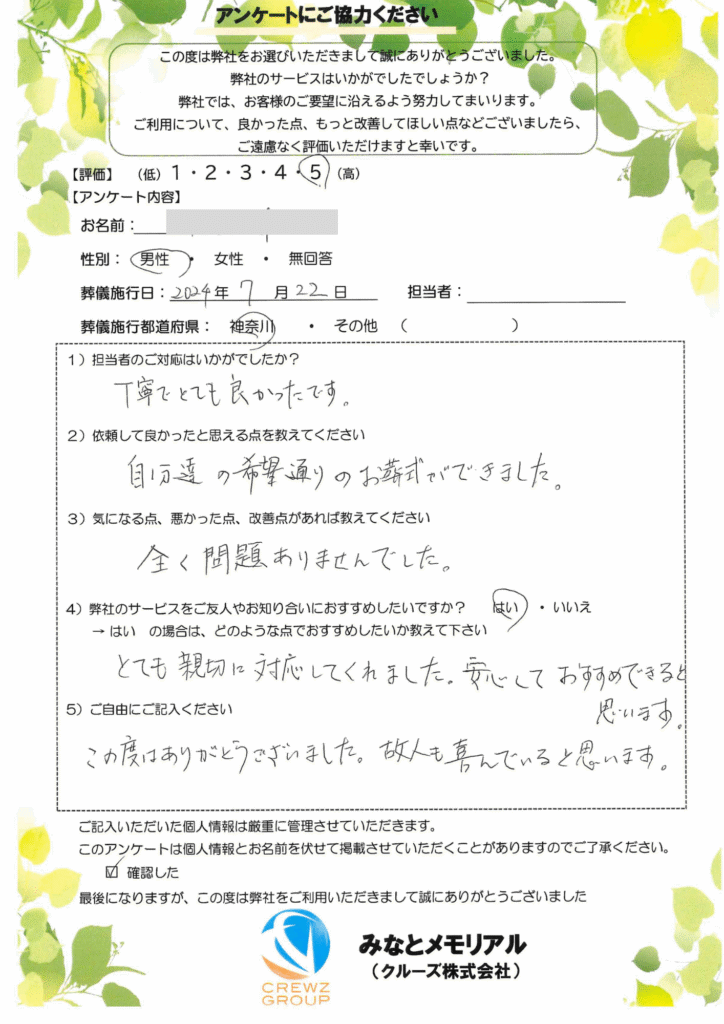 アンケートにご協力ください
この度は弊社をお選びいただきまして誠にありがとうございました。
弊社のサービスはいかがでしたでしょうか？
弊社では、お客様のご要望に沿えるよう努力してまいります。
ご利用について、良かった点、もっと改善してほしい点などございましたら、
ご遠慮なく評価いただけますと幸いです。
【評価】 （低）1・2・3・4・5（高）
【アンケート内容】
お名前：
性別： 男性 ・ 女性 ・ 無回答
葬儀施行日：2024年 7月22日 担当者：
葬儀施行都道府県： 神奈川 ・ その他 （ ）
1）担当者のご対応はいかがでしたか？
丁寧でとても良かったです。
2）依頼して良かったと思える点を教えてください
自分達の希望通りのお葬式ができました。
3）気になる点、悪かった点、改善点があれば教えてください
全く問題ありませんでした。
4）弊社のサービスをご友人やお知り合いにおすすめしたいですか？ はい ・いいえ
→ はい の場合は、どのような点でおすすめしたいか教えて下さい
とても親切に対応してくれました。安心しておすすめできると
思います。
5）ご自由にご記入ください
この度はありがとうございました。故人も喜んでいると思います。
ご記入いただいた個人情報は厳重に管理させていただきます。
このアンケートは個人情報とお名前を伏せて掲載させていただくことがありますのでご了承ください。
☑ 確認した
最後になりますが、この度は弊社をご利用いただきまして誠にありがとうございました
CREWZ
GROUP
みなとメモリアル
（クルーズ株式会社）